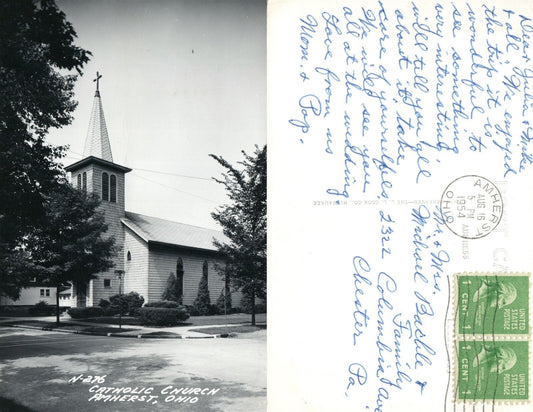 N-276
CATHOLIC CHURCH
AMHERST, OHIO
Dear Julia & Mike
& all. We enjoyed
the trip it is
wonderful to
see something
very interesting.
will tell you all
about it, take
care of yourselfes
We will see you
all at the wedding
Love from us
Mom & Pop.
AMHERST
AUG 16
5 PM
1954
OHIO
ADDRESS
L. L. COOK CO., MILWAUKEE
Mr. & Mrs.
Michael &
Family
2322 Columbia Ave
Chester Pa.
UNITED
STATES
POSTAGE
1 CENT 1
UNITED
STATES
POSTAGE
1 CENT 1